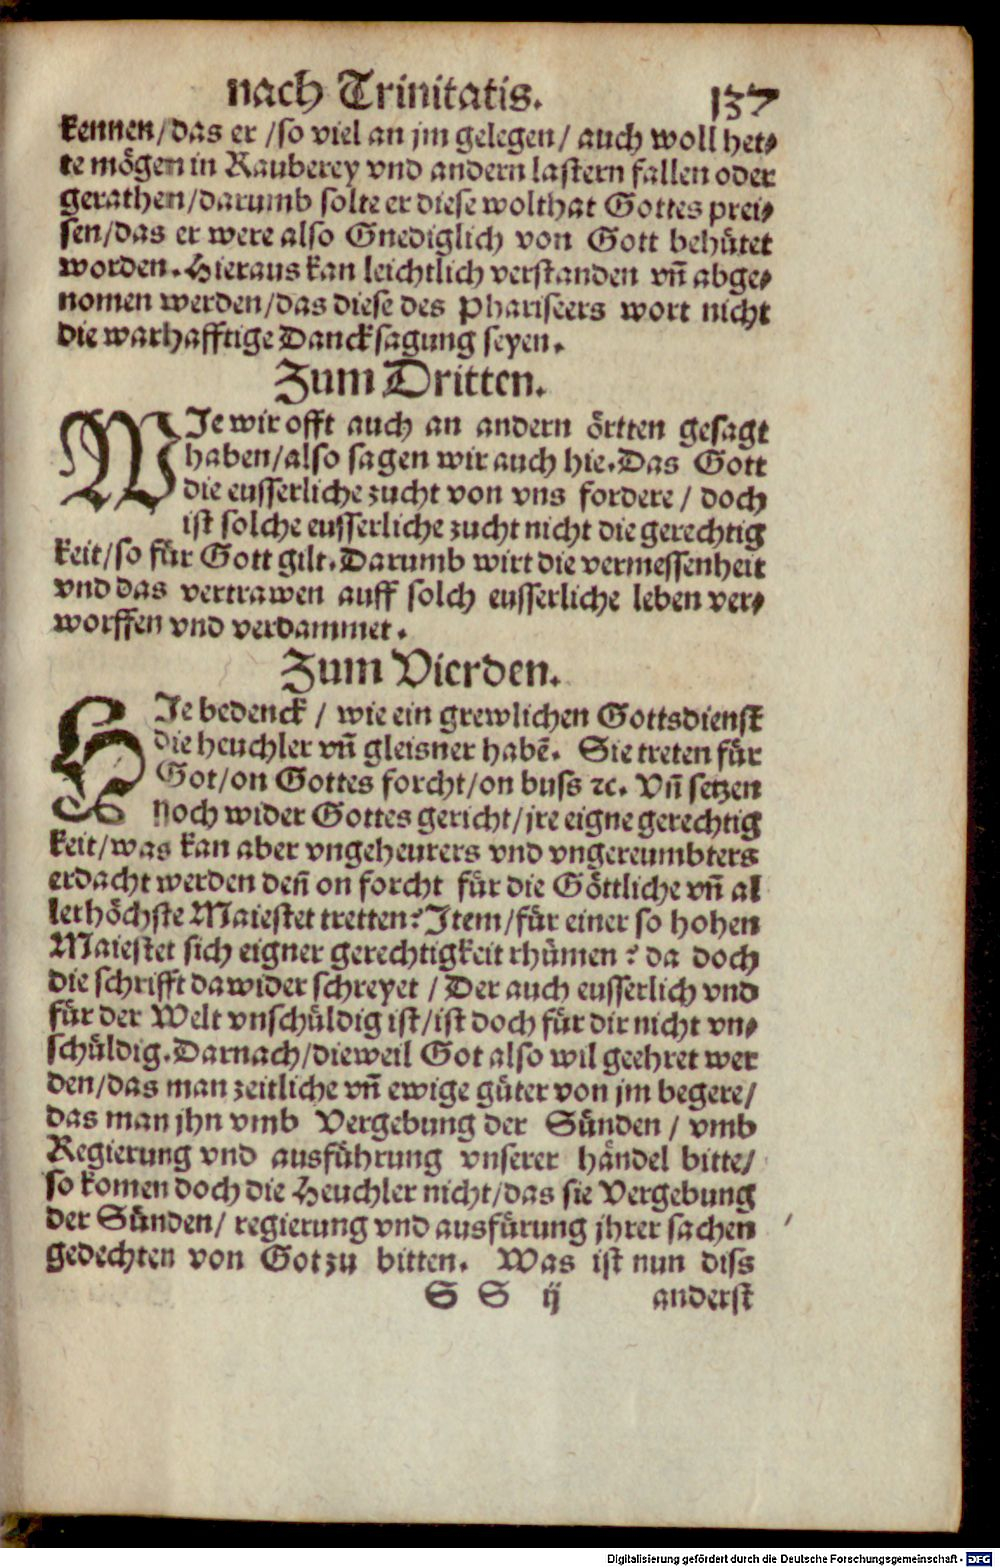 nach Trinitatis. 137
kennen/das er /so viel an jm gelegen/ auch woll het⸗
te mögen in Rauberey vnd andern lastern fallen oder
gerathen/darumb solte er diese wolthat Gottes prei⸗
sen/das er were also Gnediglich von Gott behütet
worden. Hieraus kan leichtlich verstanden vñ abge⸗
nomen werden/das diese des Phariseers wort nicht
die warhafftige Dancksagung seyen.
Zum Dritten.
WJe wir offt auch an andern örtten gesagt
haben/also sagen wir auch hie. Das Gott
die eusserliche zucht von vns fordere / doch
ist solche eusserliche zucht nicht die gerechtig
keit/so für Gott gilt. Darumb wirt die vermessenheit
vnd das vertrawen auff solch eusserliche leben ver⸗
worffen vnd verdammet.
Zum Vierden.
HJe bedenck / wie ein grewlichen Gottsdienst
die heuchler vñ gleisner habē. Sie treten für
Got/on Gottes forcht/on buss ꝛc. Vñ setzen
noch wider Gottes gericht/jre eigne gerechtig
keit/was kan aber vngeheurers vnd vngereumbters
erdacht werden deñ on forcht für die Göttliche vñ al
lerhöchste Maiestet tretten? Jtem/für einer so hohen
Maiestet sich eigner gerechtigkeit rhümen? da doch
die schrifft dawider schreyet / Der auch eusserlich vnd
für der Welt vnschüldig ist/ist doch für dir nicht vn⸗
schüldig. Darnach/dieweil Got also wil geehret wer
den/das man zeitliche vñ ewige güter von jm begere/
das man jhn vmb Vergebung der Sünden / vmb
Regierung vnd ausführung vnserer händel bitte/
so komen doch die Heuchler nicht/das sie Vergebung
der Sünden/ regierung vnd ausfürung jhrer sachen
gedechten von Got zu bitten. Was ist nun diss
S S ij anderst
Digitalisierung gefördert durch die Deutsche Forschungsgemeinschaft - DFG